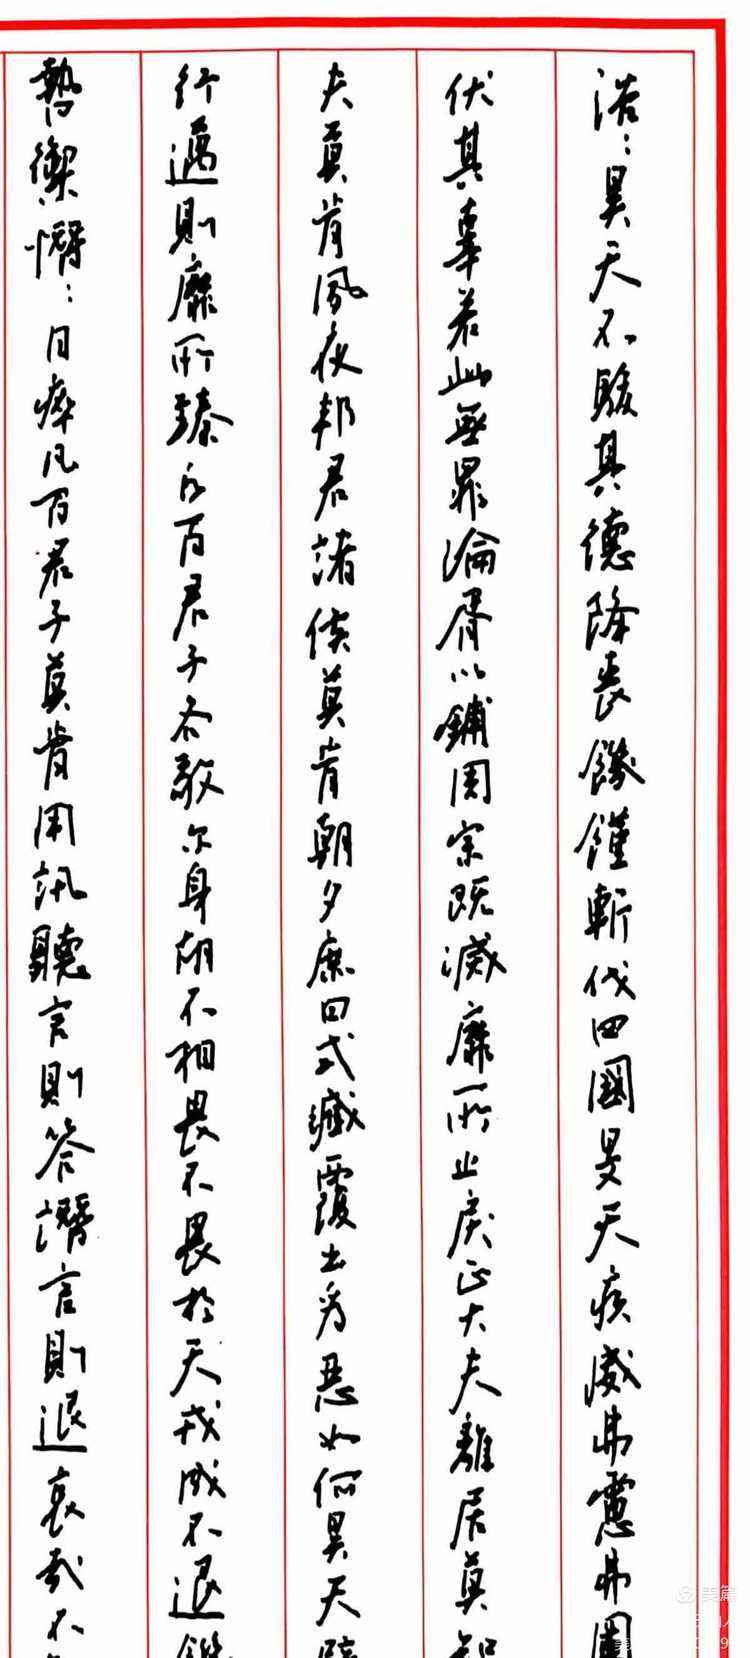 浩:昊天不駿其德降喪饑饉斬伐四國旻天疾威弗慮弗圖
伏其辜若此無罪淪胥以鋪周宗既滅靡所止戾正大夫離居莫知
夫莫肯夙夜邦君諸侯莫肯朝夕庶曰式臧覆出為惡如何昊天辟
行邁則靡所臻凡百君子各敬爾身胡不相畏不畏於天戎成不退饑
暬御憯:日瘁凡百君子莫肯用訊聽言則答譖言則退哀哉不
美篇